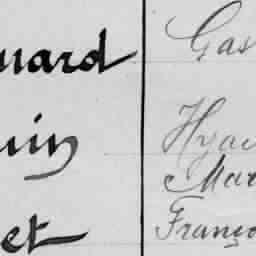 uard Gas
uin Hyac
Mar
et Franço